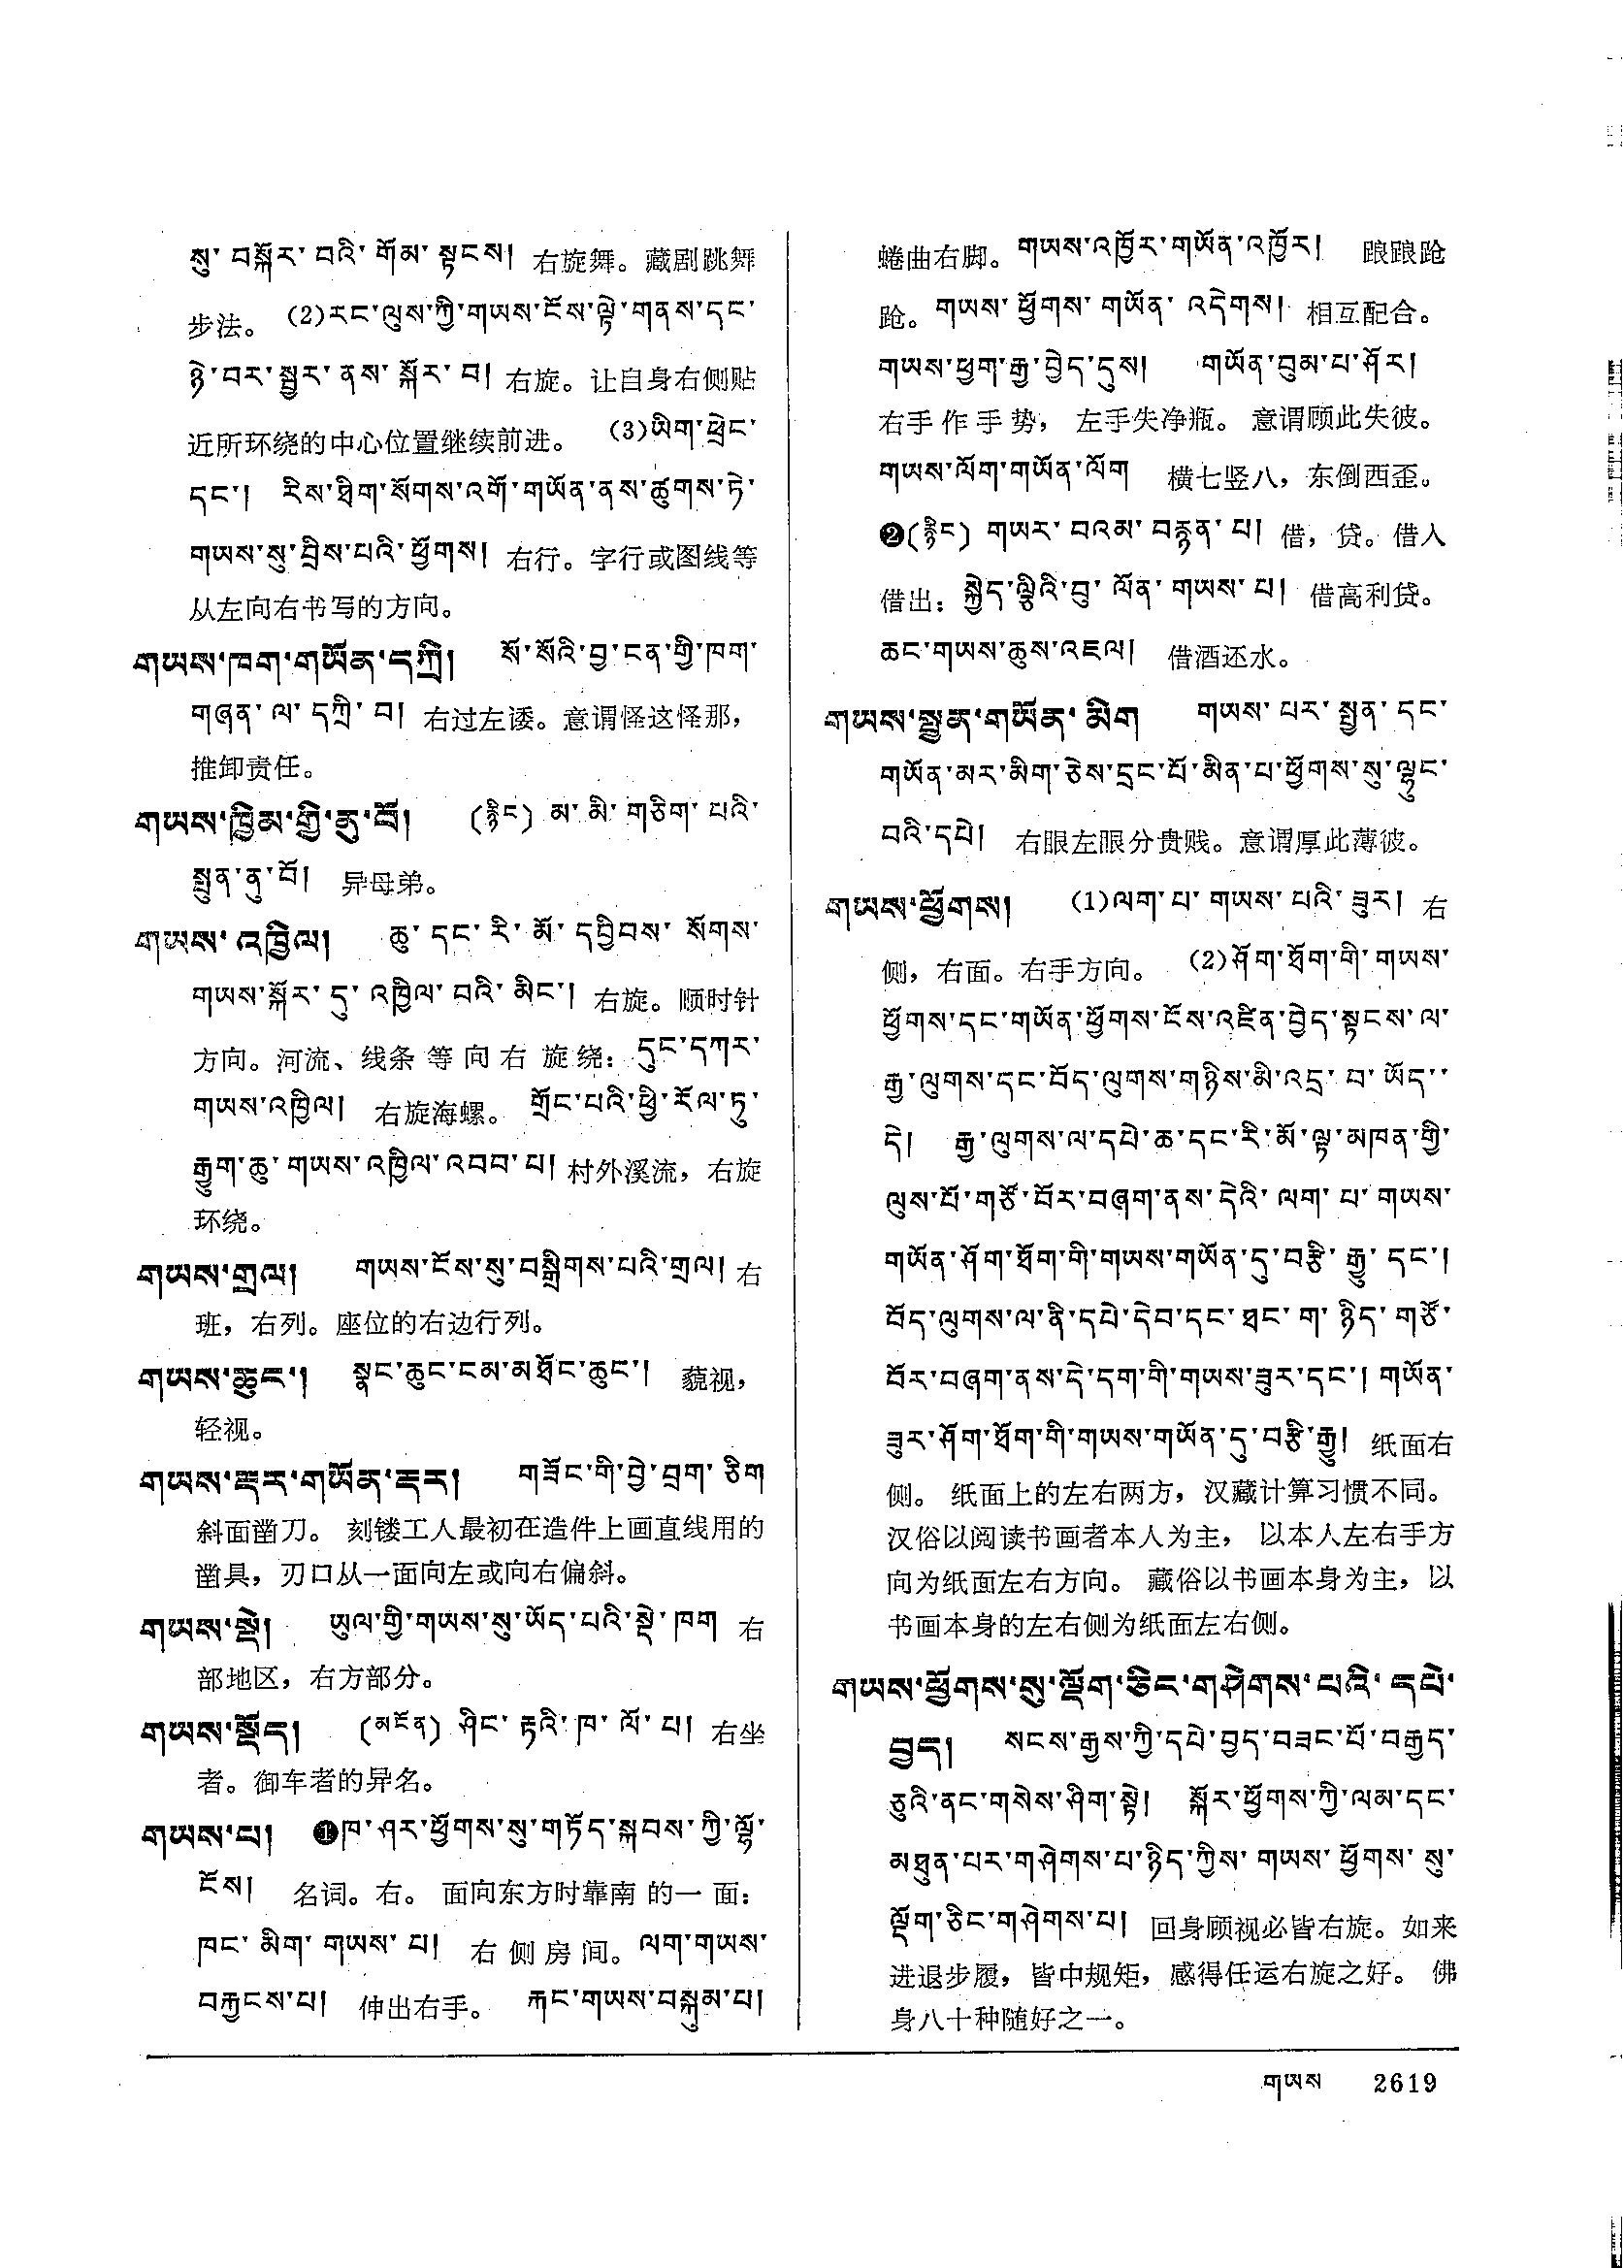 སུ་ བསྐོར་ བའི་ གོམ་ སྟངས། 右旋舞。藏剧跳舞
步法。 (2)རང་ལུས་ཀྱི་གཡས་ངོས་ལྟེ་གནས་དང་
ཉེ་བར་སྦྱར་ནས་སྐོར་བ། 右旋。让自身右侧贴
近所环绕的中心位置继续前进。 (3)ཡིག་ཕྲེང་
དང་། རིས་ཐིག་སོགས་འགོ་གཡོན་ནས་ཚུགས་ཏེ་
གཡས་སུ་བྲིས་པའི་ཕྱོགས། 右行。字行或图线等
从左向右书写的方向。
གཡས་ཁག་གཡོན་དཀྲི། སོ་སོའི་བྱ་ངན་གྱི་ཁག་
གཞན་ལ་དཀྲི་བ། 右过左诿。意谓怪这怪那，
推卸责任。
གཡས་ཁྱིམ་གྱི་ནུ་བོ། (རྙིང) མ་མི་གཅིག་པའི་
སྤུན་ནུ་བོ། 异母弟。
གཡས་འཁྱིལ། ཆུ་དང་རི་མོ་དབྱིབས་སོགས་
གཡས་སྐོར་དུ་འཁྱིལ་བའི་མིང་། 右旋。顺时针
方向。河流、线条等向右旋绕：དུང་དཀར་
གཡས་འཁྱིལ། 右旋海螺。 གྲོང་པའི་ཕྱི་རོལ་ཏུ་
རྒྱུག་ཆུ་གཡས་འཁྱིལ་འབབ་པ། 村外溪流，右旋
环绕。
གཡས་གྲལ། གཡས་ངོས་སུ་བསྒྲིགས་པའི་གྲལ། 右
班，右列。座位的右边行列。
གཡས་ཆུང་། སྣང་ཆུང་ངམ་མཐོང་ཆུང་། 藐视，
轻视。
གཡས་རྡར་གཡོན་རྡར། གཟོང་གི་བྱེ་བྲག་ཅིག
斜面凿刀。 刻镂工人最初在造件上画直线用的
凿具，刃口从一面向左或向右偏斜。
གཡས་སྡེ། ཡུལ་གྱི་གཡས་སུ་ཡོད་པའི་སྡེ་ཁག 右
部地区，右方部分。
གཡས་སྡོད། (མངོན) ཤིང་རྟའི་ཁ་ལོ་པ། 右坐
者。御车者的异名。
གཡས་པ། ❶ཁ་ཤར་ཕྱོགས་སུ་གཏོད་སྐབས་ཀྱི་ལྷོ་
ངོས། 名词。右。 面向东方时靠南的一面：
ཁང་མིག་གཡས་པ། 右侧房间。ལག་གཡས་
བརྐྱངས་པ། 伸出右手。 རྐང་གཡས་བསྐུམ་པ།
蜷曲右脚。གཡས་འཁྱོར་གཡོན་འཁྱོར། 踉踉跄
跄。གཡས་ཕྱོགས་གཡོན་འདེགས། 相互配合。
གཡས་ཕྱག་རྒྱ་བྱེད་དུས། གཡོན་བུམ་པ་ཤོར།
右手作手势， 左手失净瓶。 意谓顾此失彼。
གཡས་ལོག་གཡོན་ལོག 横七竖八，东倒西歪。
❷(རྙིང) གཡར་བའམ་བརྙན་པ། 借，贷。借入
借出：སྐྱེད་ལྕིའི་བུ་ལོན་གཡས་པ། 借高利贷。
ཆང་གཡས་ཆུས་འཇལ། 借酒还水。
གཡས་སྤྱན་གཡོན་མིག གཡས་པར་སྤྱན་དང་
གཡོན་མར་མིག་ཅེས་དྲང་པོ་མིན་པ་ཕྱོགས་སུ་ལྷུང་
བའི་དཔེ། 右眼左眼分贵贱。意谓厚此薄彼。
གཡས་ཕྱོགས། (1)ལག་པ་གཡས་པའི་ཟུར། 右
侧，右面。右手方向。 (2)ཤོག་ཐོག་གི་གཡས་
ཕྱོགས་དང་གཡོན་ཕྱོགས་ངོས་འཛིན་བྱེད་སྟངས་ལ་
རྒྱ་ལུགས་དང་བོད་ལུགས་གཉིས་མི་འདྲ་བ་ཡོད་་
དེ། རྒྱ་ལུགས་ལ་དཔེ་ཆ་དང་རི་མོ་ལྟ་མཁན་གྱི་
ལུས་པོ་གཙོ་བོར་བཞག་ནས་དེའི་ལག་པ་གཡས་
གཡོན་ཤོག་ཐོག་གི་གཡས་གཡོན་དུ་བརྩི་རྒྱུ་དང་།
བོད་ལུགས་ལ་ནི་དཔེ་དེབ་དང་ཐང་ག་ཉིད་གཙོ་
བོར་བཞག་ནས་དེ་དག་གི་གཡས་ཟུར་དང་། གཡོན་
ཟུར་ཤོག་ཐོག་གི་གཡས་གཡོན་དུ་བརྩི་རྒྱུ། 纸面右
侧。 纸面上的左右两方，汉藏计算习惯不同。
汉俗以阅读书画者本人为主， 以本人左右手方
向为纸面左右方向。 藏俗以书画本身为主，以
书画本身的左右侧为纸面左右侧。
གཡས་ཕྱོགས་སུ་ལྡོག་ཅིང་གཤེགས་པའི་དཔེ་
བྱད། སངས་རྒྱས་ཀྱི་དཔེ་བྱད་བཟང་པོ་བརྒྱད་
ཅུའི་ནང་གསེས་ཤིག་སྟེ། སྐོར་ཕྱོགས་ཀྱི་ལམ་དང་
མཐུན་པར་གཤེགས་པ་ཉིད་ཀྱིས་གཡས་ཕྱོགས་སུ་
ལྡོག་ཅིང་གཤེགས་པ། 回身顾视必皆右旋。如来
进退步履，皆中规矩，感得任运右旋之好。 佛
身八十种随好之一。
གཡས 2619